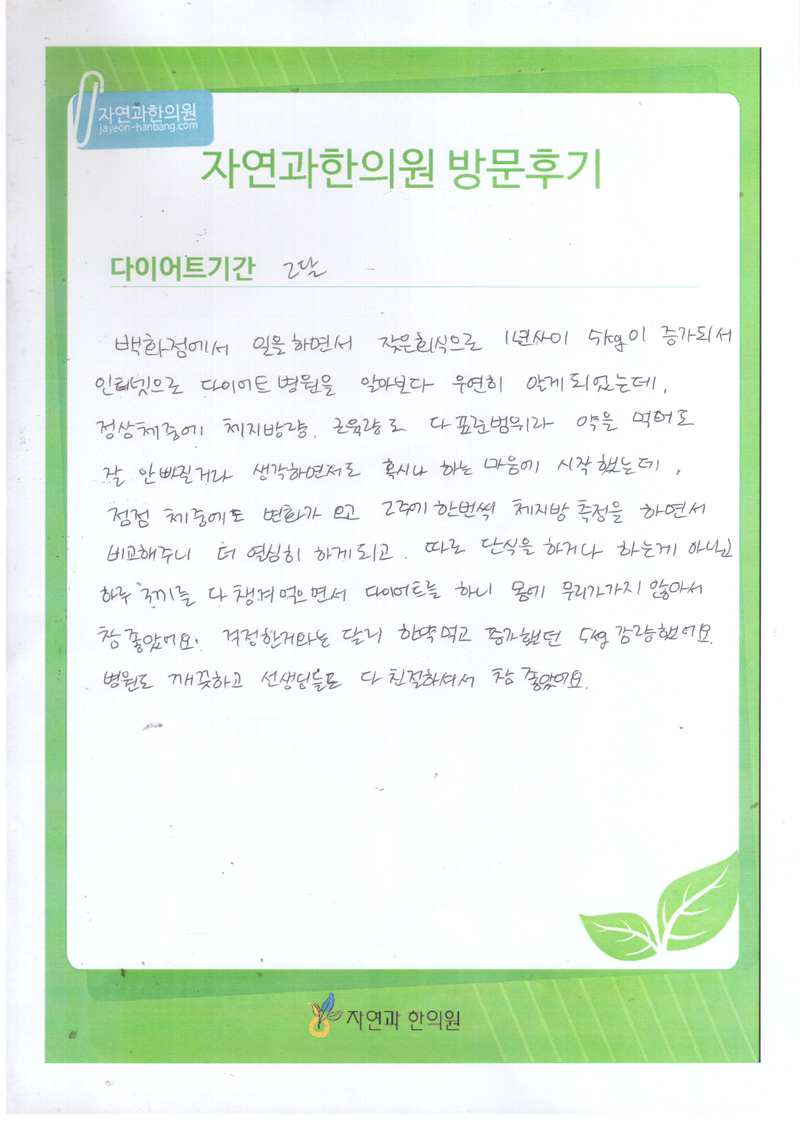 자연과한의원
jayeon-hanbang.com
자연과한의원 방문후기
다이어트기간 2달
백화점에서 일을하면서 잦은회식으로 1년사이 5kg이 증가되서
인터넷으로 다이어트 병원을 알아보다 우연히 알게되었는데,
정상체중에 체지방량, 근육량도 다 표준범위라 약을 먹어도
잘 안빠질거라 생각하면서도 혹시나 하는 마음에 시작했는데,
점점 체중에도 변화가 오고 2주에 한번씩 체지방 측정을 하면서
비교해주니 더 열심히 하게되고. 따로 단식을 하거나 하는게 아니고
하루 3끼를 다 챙겨먹으면서 다이어트를 하니 몸에 무리가가지 않아서
참 좋았어요. 걱정한거와는 달리 한약먹고 증가했던 5kg 감량했어요.
병원도 깨끗하고 선생님들도 다 친절하셔서 참 좋았어요.
자연과 한의원